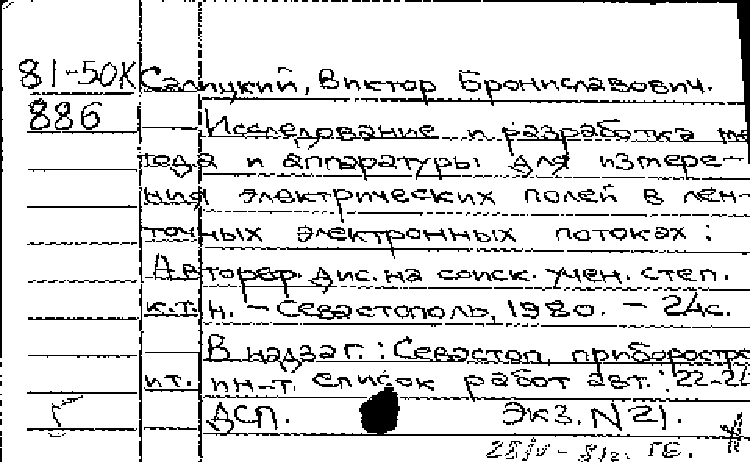 81-50К Салицкий, Виктор Брониславович.
886 Исследование и разработка ме
тода и аппаратуры для измере-
ния электрических полей в лен-
точных электронных потоках:
Автореф. дис. на соиск. учен. степ.
к.т.н. - Севастополь, 1980. - 24с.
В надзаг.: Севастоп. приборостро
ит. ин-т. Список работ авт.: 22-2
ДСП. Экз. N21.